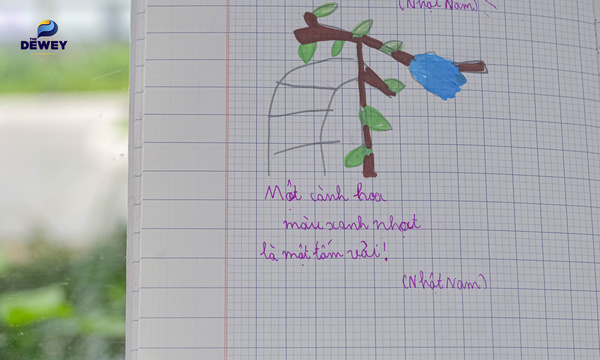 THE
DEWEY
(Nhật Nam)
Một cành hoa
màu xanh nhạt
là một tấm vải!
(Nhật Nam)